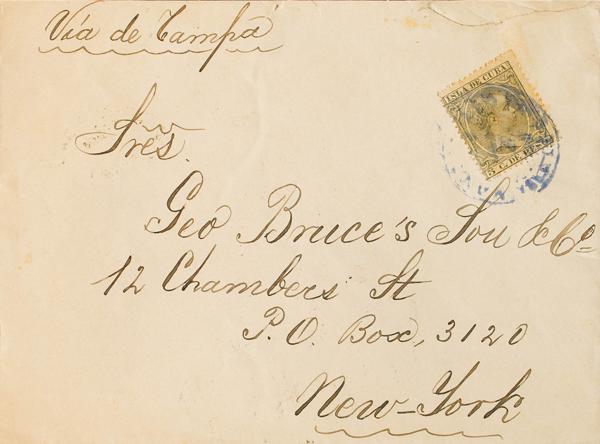 Vía de Tampa
Sres.
Geo Bruce's Son & Co
12 Chambers St
P.O. Box, 3120
New-York
ISLA DE CUBA
5 C. DE PESO